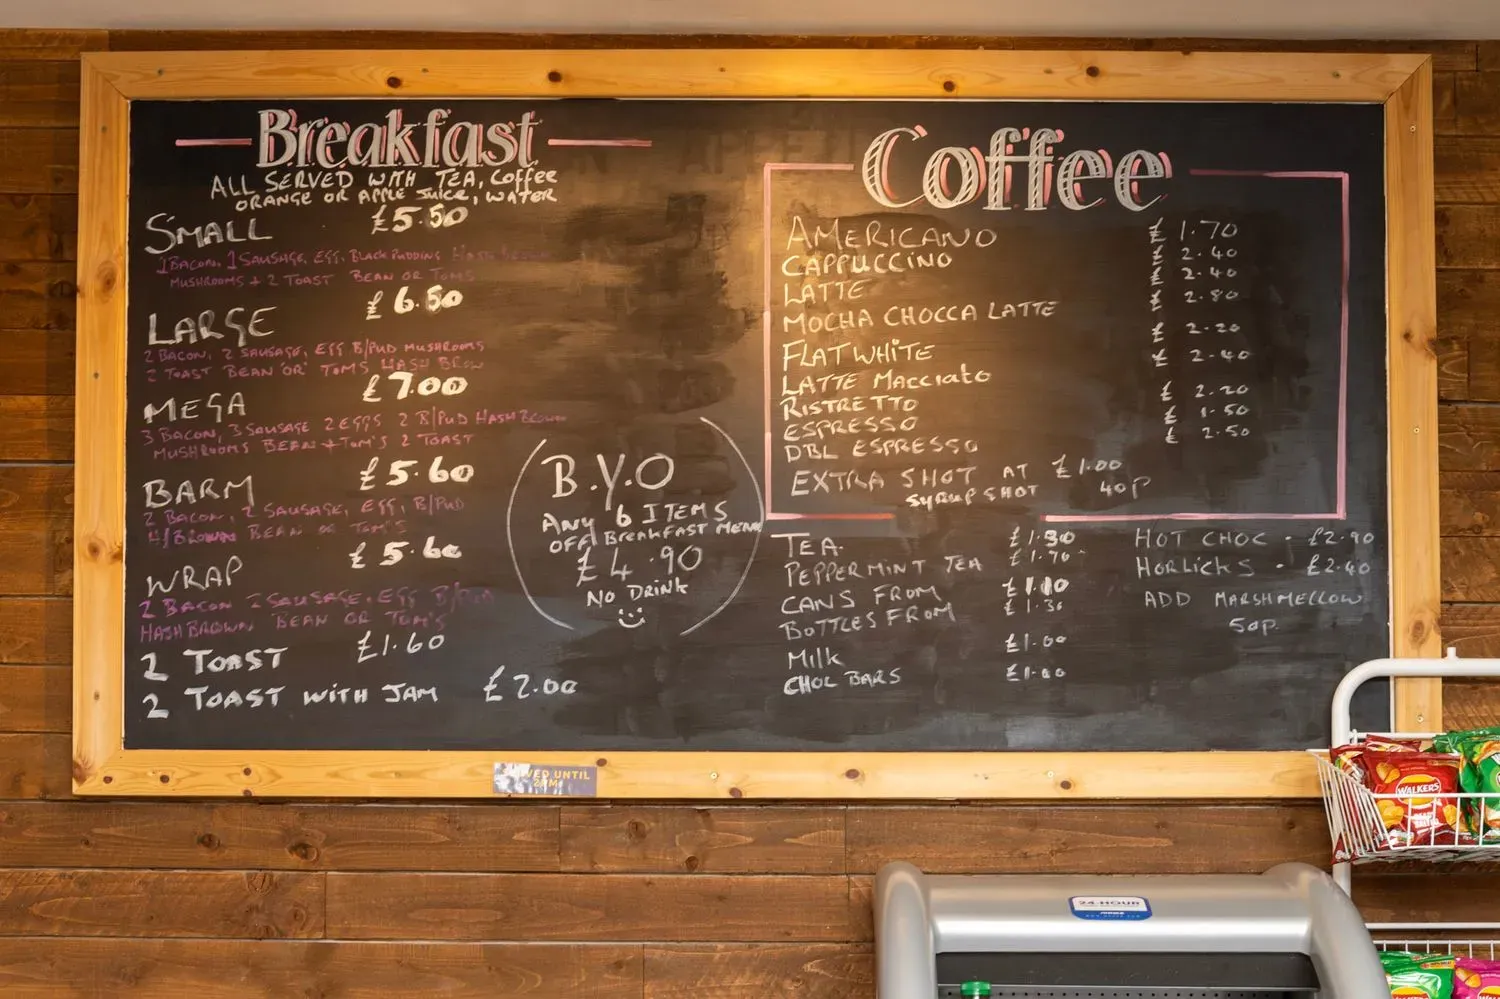 Breakfast
ALL SERVED WITH TEA, Coffee
ORANGE OR APPLE JUICE, WATER
SMALL £5.50
1 BACON, 1 SAUSAGE, EGG, BLACK PUDDING HASH BROWN
MUSHROOMS + 2 TOAST BEAN OR TOMS
LARGE £6.50
2 BACON, 2 SAUSAGE, EGG B/PUD MUSHROOMS
2 TOAST BEAN OR TOMS HASH BROW
MEGA £7.00
3 BACON, 3 SAUSAGE 2 EGGS 2 B/PUD HASH BROWN
MUSHROOMS BEAN + TOM'S 2 TOAST
BARM £5.60
2 BACON, 2 SAUSAGE, EGG, B/PUD
H/BROWN BEAN OR TOM'S
WRAP £5.60
2 BACON 2 SAUSAGE, EGG B/PUD
HASH BROWN BEAN OR TOM'S
2 TOAST £1.60
2 TOAST WITH JAM £2.00
B.Y.O
ANY 6 ITEMS
OFF BREAKFAST MENU
£4.90
NO DRINK
Coffee
AMERICANO £1.70
CAPPUCCINO £2.40
LATTE £2.40
MOCHA CHOCCA LATTE £2.80
FLAT WHITE £2.20
LATTE MACCIATO £2.40
RISTRETTO £2.20
ESPRESSO £1.50
DBL ESPRESSO £2.50
EXTRA SHOT AT £1.00
SYRUP SHOT 40P
TEA £1.30
PEPPERMINT TEA £1.70
CANS FROM £1.10
BOTTLES FROM £1.30
MILK £1.00
CHOC BARS £1.00
HOT CHOC - £2.90
HORLICKS - £2.40
ADD MARSHMELLOW
50p
UNTIL
WALKERS
24-HOUR